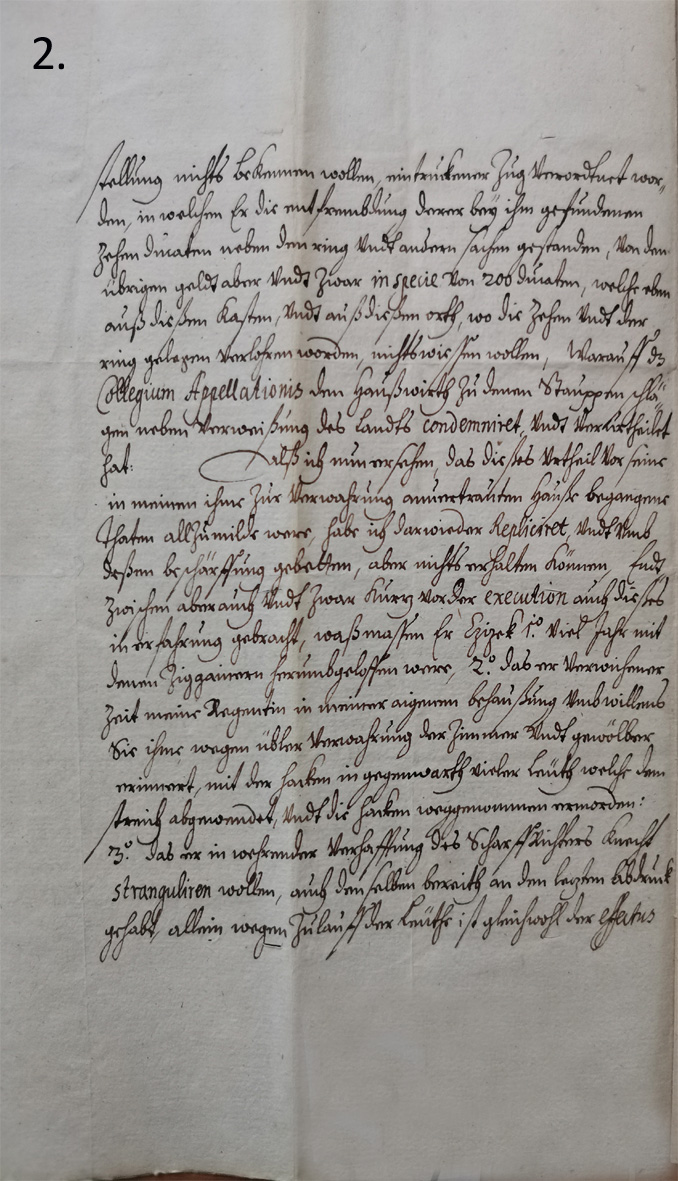 2.
stellung nichts bekennen wollen, ein truckener Zug verordtnet wor„
den, in welchen Er die entfrembdung derer bey ihm gefundenen
Zehen ducaten neben den ring Vndt andern sachen gestanden, Von den
übrigen geldt aber Vndt Zwar in specie Von 200 ducaten, welche eben
auß dießen Kasten, Vndt auß dießen orth, wo die Zehen Vndt der
ring gelegen Verlohren worden, nichts wissen wollen, Warauff dz
Collegium Appellationis den Haußwirth Zu denen Stauppen schlä„
gen neben Verweißung des Landts condemniret, Vndt Verurtheilet
hat: Alß ich nun ersehen, das dießes Vrtheil Vor seine
in meinen ihme Zur Verwahrung anvertrauten Hauße begangene
Thaten allzu milde were, habe ich darwieder Repliciret, Vndt Vmb
deßen beschärffung gebetten, aber nichts erhalten Können,
Zwischen aber auch Vndt Zwar Kurtz vor der execution auch dießes
in erfahrung gebracht, waßmassen Er Czizek 1.º Viel Jahr mit
denen Ziggainern herumbgeloffen were, 2.º das er Verwichener
Zeit meine Regentin in meiner aigenen behaußung Vmb willens
Sie ihme wegen übler Verwahrung der Zimmer Vndt gewölber
erinnert, mit der hacken in gegenwarth vieler Leüth welche den
streich abgewendet, Vndt die hacken weggenommen ermorden:
3.º das er in wehrender Verhafftung des Scharff Richters Knecht
stranguliren wollen, auch denselben bereith an den lezten Abdruck
gehabt, allein wegen Zulauff der Leüthe ist gleichwohl der effectus